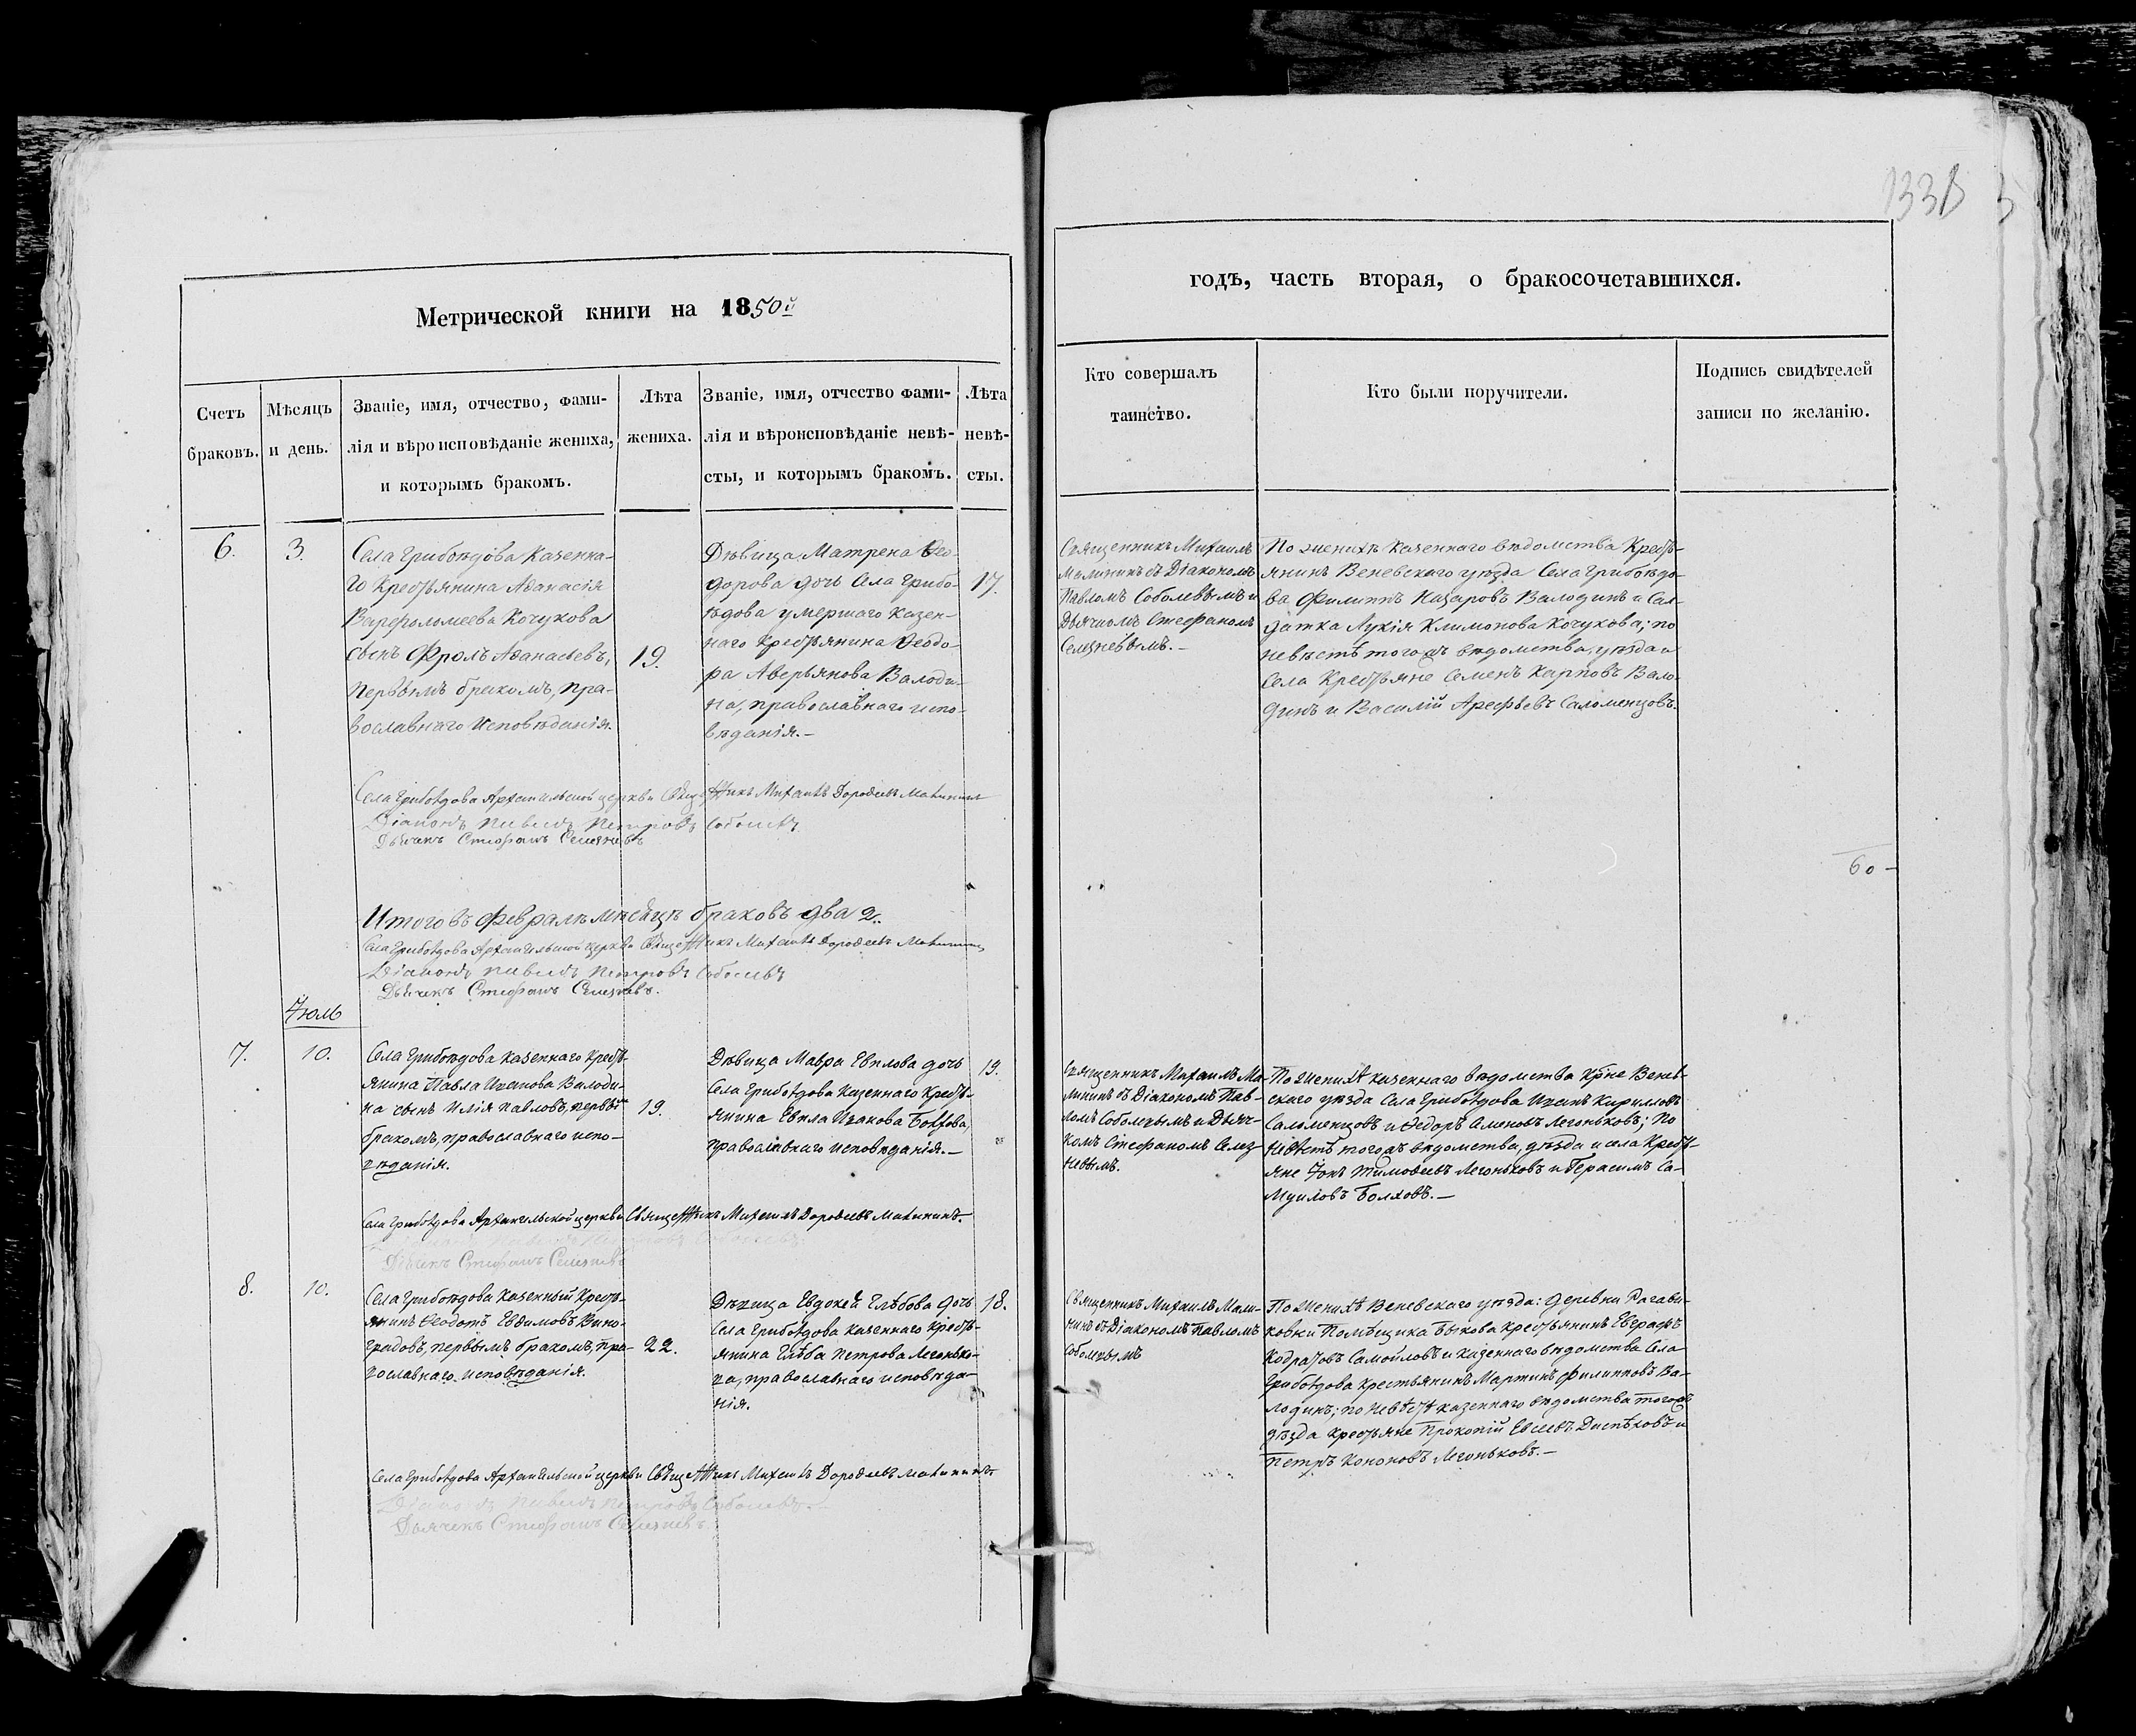 133
Метрической книги на 1850й
годъ, часть вторая, о бракосочетавшихся.
Счетъ
браковъ.
Мѣсяцъ
и день.
Званіе, имя, отчество, фами-
лія и вѣроисповѣданіе жениха,
и которымъ бракомъ.
Лѣта
жениха.
Званіе, имя, отчество фами-
лія и вѣроисповѣданіе невѣ-
сты, и которымъ бракомъ.
Лѣта
невѣ-
сты.
Кто совершалъ
таинство.
Кто были поручители.
Подпись свидѣтелей
записи по желанію.
6.
3.
Села Грибоѣдова казенна-
го Крестьянина Аѳанасія
Варфоломеева Кочукова
сынъ Фролъ Аѳанасьевъ,
первымъ бракомъ, пра-
вославнаго исповѣданія.
19.
Дѣвица Матрена Ѳео-
дорова дочь Села Грибо-
ѣдова умершаго казен-
наго Крестьянина Ѳеодо-
ра Аверьянова Валоди-
на, православнаго испо-
вѣданія.-
17.
Священникъ Михаилъ
Малининъ съ Діакономъ
Павломъ Соболевымъ и
Дьячкомъ Стефаномъ
Селезневымъ.-
По женихѣ казеннаго вѣдомства Кресть-
янинъ Веневскаго уѣзда Села Грибоѣдо-
ва Филиппъ Назаровъ Валодинъ и Сол-
датка Лукія Климонова Кочукова; по
невѣстѣ тогожъ вѣдомства, уѣзда и
Села Крестьяне Семенъ Карповъ Вало-
динъ и Василій Арефьевъ Саломенцовъ.
Села Грибоѣдова Архангельской церкви Священникъ Михаилъ Дороѳеевъ Малининъ
Діаконъ Павелъ Петровъ Соболевъ
Дьячекъ Стефанъ Селезневъ
60-
Итого въ Февралѣ мѣсяцѣ браковъ два 2.
Села Грибоѣдова Архангельской церкви Священникъ Михаилъ Дороѳеевъ Малининъ
Діаконъ Павелъ Петровъ Соболевъ
Дьячекъ Стефанъ Селезневъ.
Іюль
7.
10.
Села Грибоѣдова казеннаго Кресть-
янина Павла Иванова Валоди-
на сынъ Илія Павловъ, первымъ
бракомъ, православнаго испо-
вѣданія.
19.
Дѣвица Мавра Евплова дочь
Села Грибоѣдова казеннаго Кресть-
янина Евпла Иванова
православнаго исповѣданія.-
19.
Священникъ Михаилъ Ма-
лининъ съ Діакономъ Пав-
ломъ Соболевымъ и Дьяч-
комъ Стефаномъ Селез-
невымъ.
По женихѣ казеннаго вѣдомства Кр̃не Венев-
скаго уѣзда Села Грибоѣдова Иванъ Кирилловъ
Саломенцовъ и Ѳедоръ Семеновъ Легоньковъ; По
невѣстѣ тогожъ вѣдомства, уѣзда и села Кресть-
яне Тимоѳеевъ Легоньковъ и Герасимъ Са-
муиловъ Болховъ.-
Села Грибоѣдова Архангельской церкви Священникъ Михаилъ Дороѳеевъ Малининъ.
Дьячекъ Стефанъ Селезневъ
8.
10.
Села Грибоѣдова казенный Кресть-
янинъ Ѳеодотъ Евдимовъ Вино-
градовъ, первымъ бракомъ, пра-
вославнаго исповѣданія.
22.
Дѣвица Евдокея Глѣбова дочь
Села Грибоѣдова казеннаго Кресть-
янина Глѣба Петрова Легонько-
ва, православнаго исповѣда-
нія.
18.
Священникъ Михаилъ Мали-
нинъ съ Діакономъ Павломъ
Соболевымъ
По женихѣ Веневскаго уѣзда: деревни Рагави-
ковки Помѣщика Быкова крестьянинъ Евграфъ
Кодратовъ Самойловъ и казеннаго вѣдомства Села
Грибоѣдова крестьянинъ Мартинъ Филипповъ Ва-
лодинъ; по невѣстѣ казеннаго вѣдомства тогожъ
уѣзда крестьяне Прокопій Евсеевъ и
Петръ Кононовъ Легоньковъ.-
Села Грибоѣдова Архангельской церкви Священникъ Михаилъ Дороѳеевъ Малининъ
Діаконъ Павелъ Петровъ Соболевъ.-
Дьячекъ Стефанъ Селезневъ.